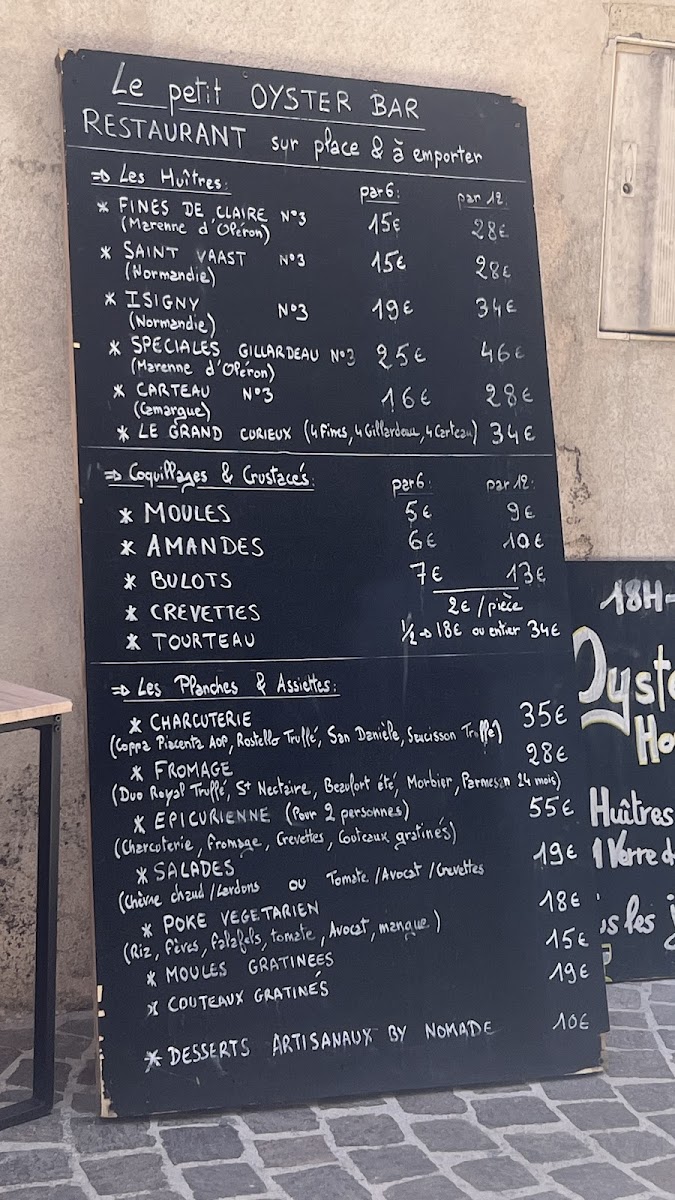 Le petit OYSTER BAR
RESTAURANT sur place & à emporter
⇒ Les Huîtres: par 6: par 12:
* FINES DE CLAIRE N°3 15€ 28€
(Marenne d'Oléron)
* SAINT VAAST N°3 15€ 28€
(Normandie)
* ISIGNY N°3 19€ 34€
(Normandie)
* SPECIALES GILLARDEAU N°3 25€ 46€
(Marenne d'Oléron)
* CARTEAU N°3 16€ 28€
(Camargue)
* LE GRAND CURIEUX (4 Fines, 4 Gillardeau, 4 Carteau) 34€
⇒ Coquillages & Crustacés: par 6: par 12:
* MOULES 5€ 9€
* AMANDES 6€ 10€
* BULOTS 7€ 13€
* CREVETTES 2€/pièce
* TOURTEAU 1/2 → 18€ ou entier 34€
⇒ Les Planches & Assiettes:
* CHARCUTERIE 35€
(Copra Piacenta AOP, Rostello Truffé, San Danièle, Saucisson Truffe)
* FROMAGE 28€
(Duo Royal Truffé, St Nectaire, Beaufort été, Morbier, Parmesan 24 mois)
* EPICURIENNE (Pour 2 personnes) 55€
(Charcuterie, Fromage, Crevettes, Couteaux gratinés)
* SALADES 19€
(Chèvre chaud/Lardons ou Tomate/Avocat/Crevettes
* POKE VEGETARIEN 18€
(Riz, Fèves, falafels, tomate, Avocat, mangue)
* MOULES GRATINEES 15€
* COUTEAUX GRATINÉS 19€
* DESSERTS ARTISANAUX BY NOMADE 10€
18H-
Oyste
Ho
Huîtres
1 Verre d
us les j